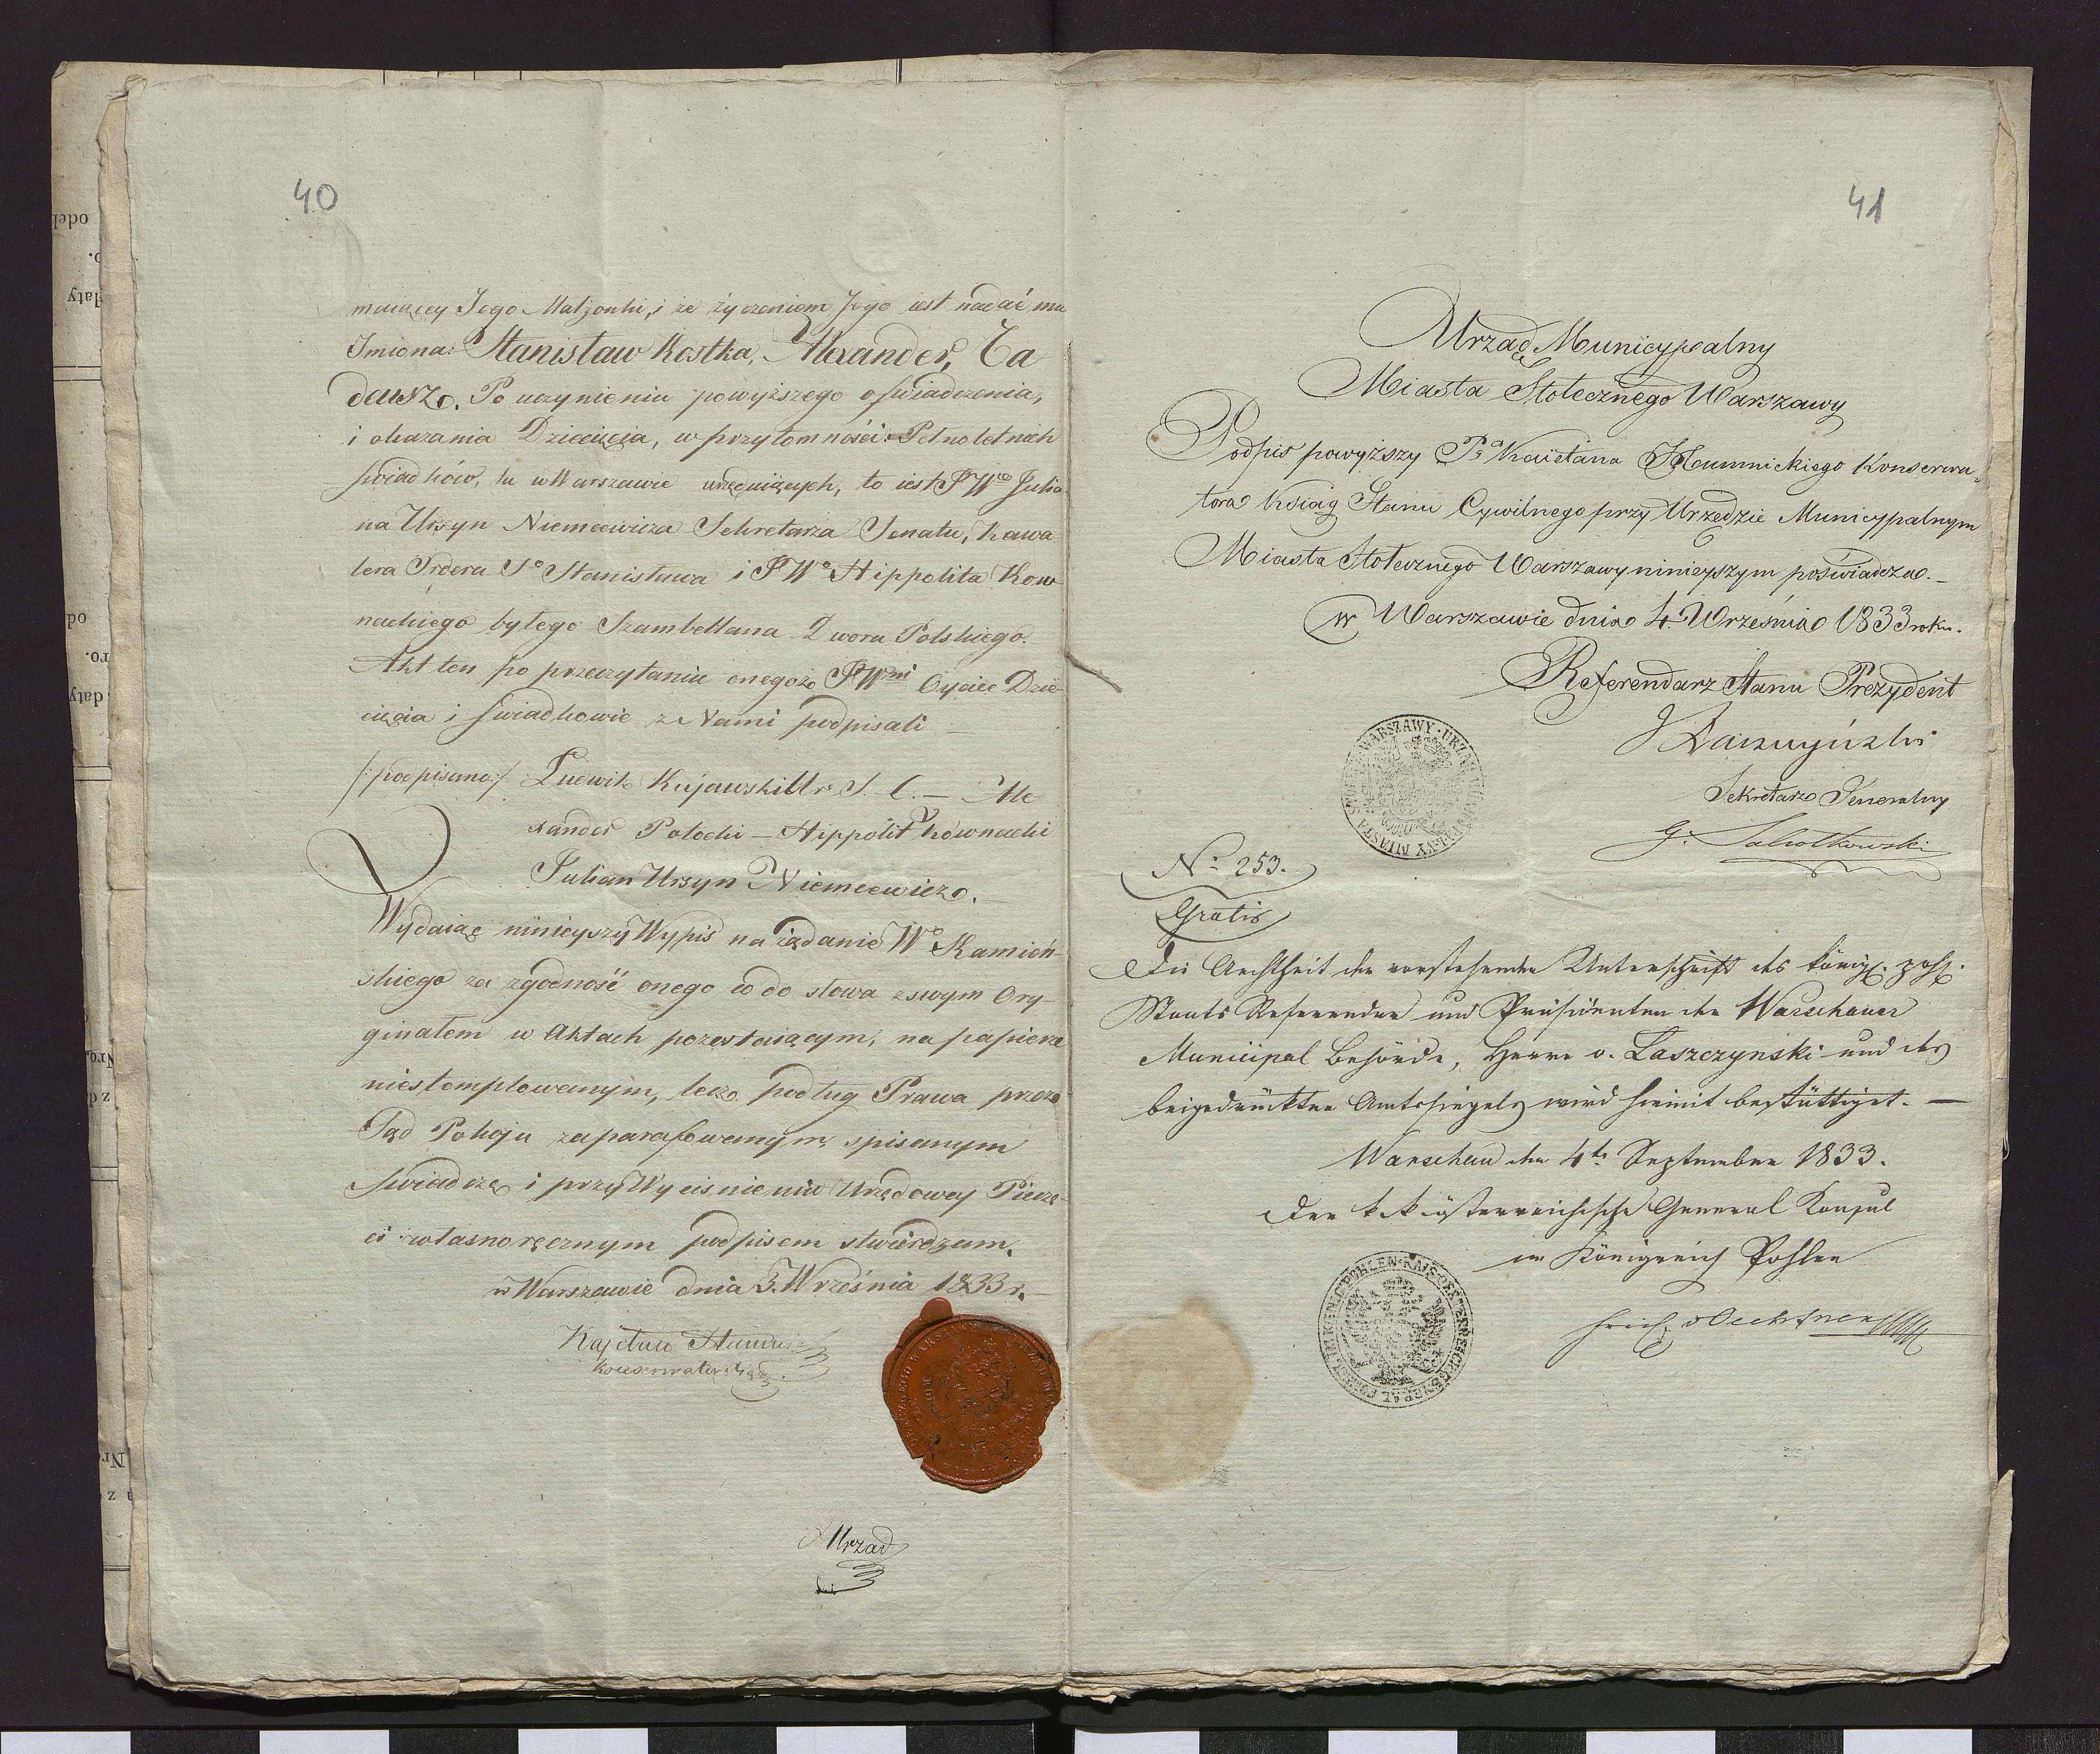 40
maiącey Jego Małżonki, i że życzeniem Jego iest nadać mu
Imiona: Stanisław Kostka, Alexander, Ta
deusz. Po uczynieniu powyższego oświadczenia,
i okazania Dziecięcia, w przytomności Pełnoletnich
świadków, tu w Warszawie urzęduiących, to iest JWo Julia
na Ursyn Niemcewicza Sekretarza Senatu, Kawa
lera Ordera So Stanisława i JWo Hippolita Kow
nackiego byłego Szambellana Dworu Polskiego.
Akt ten po przeczytaniu onegoż JWni Oyciec Dzie
cięcia i świadkowie z Nami podpisali —
/:podpisano:/ Ludwik Kujawski Ur. S. C. — Ale
xander Potocki — Hippolit Kownacki
Julian Ursyn Niemcewicz.
Wydaiąc ninieyszy Wypis na żądanie Wo Kamień
skiego za zgodność onego co do słowa z swym Ory-
ginałem w Aktach pozostaiącym, na papierze
niestemplowanym, lecz podług Prawa przez
Sąd Pokoju zaparafowanym, spisanym
świadczę i przy Wyciśnieniu Urzędowey Pieczę-
ci własnoręcznym podpisem stwierdzam.
w Warszawie dnia 3. Września 1833 r.
Kajetan
Konserwator
Urząd
41
Urząd Municypalny
Miasta Stołecznego Warszawy
Podpis powyższy Pa Kaietana Humnickiego Konserwa-
tora Ksiąg Stanu Cywilnego przy Urzędzie Municypalnym
Miasta Stołecznego Warszawy ninieyszym poświadcza.—
w Warszawie dnia 4 Września 1833 roku.
Referendarz Stanu Prezydent
Łaszczyński
Sekretarz Generalny
G.
No 253.
Gratis
Die Aechtheit der vorstehenden Unterschrift des königl. pohl.
Staats Referendar und Präsidenten der Warschauer
Municipal Behörde, Herrn v. Łaszczynski und des
beigedrückten Amtssiegels wird hiemit bestättiget. —
Warschau den 4ten September 1833.
Der k. k. österreichische General Konsul
im Königreich Pohlen